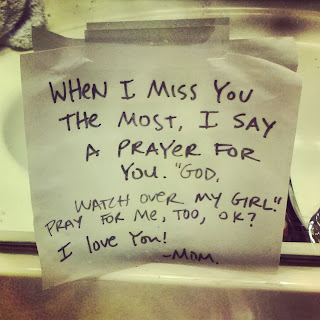 WHEN I MISS YOU
THE MOST, I SAY
A PRAYER FOR
YOU. "GOD,
WATCH OVER MY GIRL."
PRAY FOR ME, TOO, OK?
I love You!
-MOM.